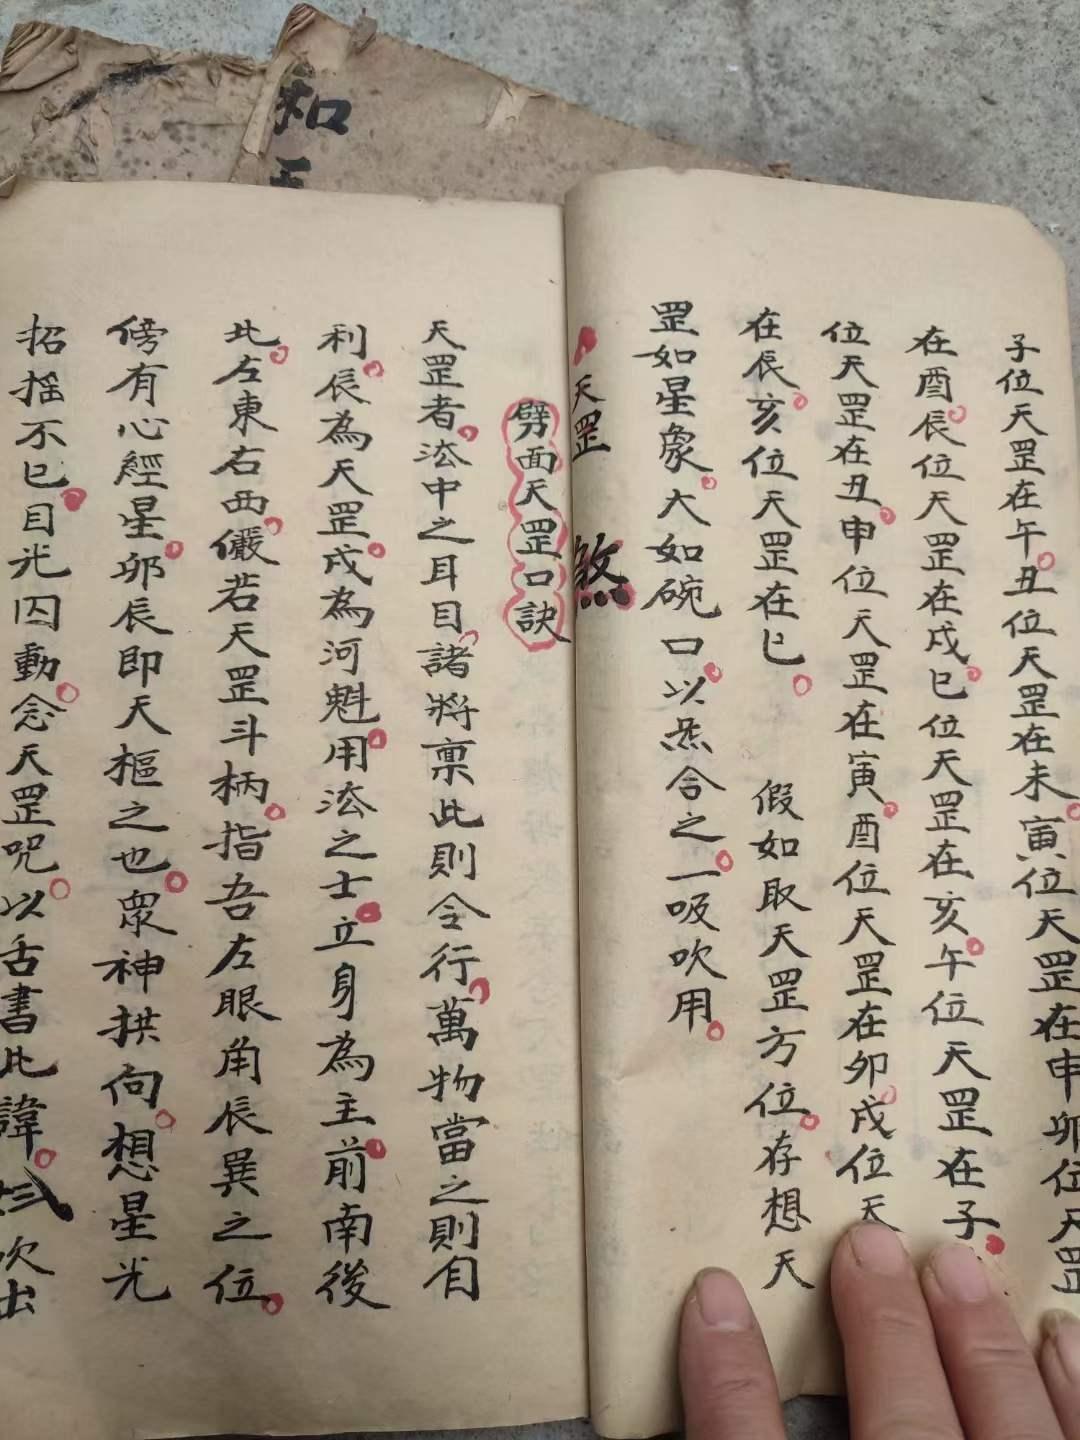 子位天罡在午丑位天罡在未寅位天罡在申卯位天罡
在酉辰位天罡在戌巳位天罡在亥午位天罡在子
位天罡在丑申位天罡在寅酉位天罡在卯戌位天
在辰亥位天罡在巳　假如取天罡方位存想天
罡如星象大如碗口以炁合之一吸吹用
天罡　煞
劈面天罡口訣
天罡者法中之耳目諸將稟此則令行萬物當之則自
利辰為天罡戌為河魁用法之士立身為主前南後
北左東右西儼若天罡斗柄指吾左眼角辰巽之位
傍有心經星卯辰即天樞之也眾神拱向想星光
招搖不已目光囚動念天罡咒以舌書此諱 吹出
和